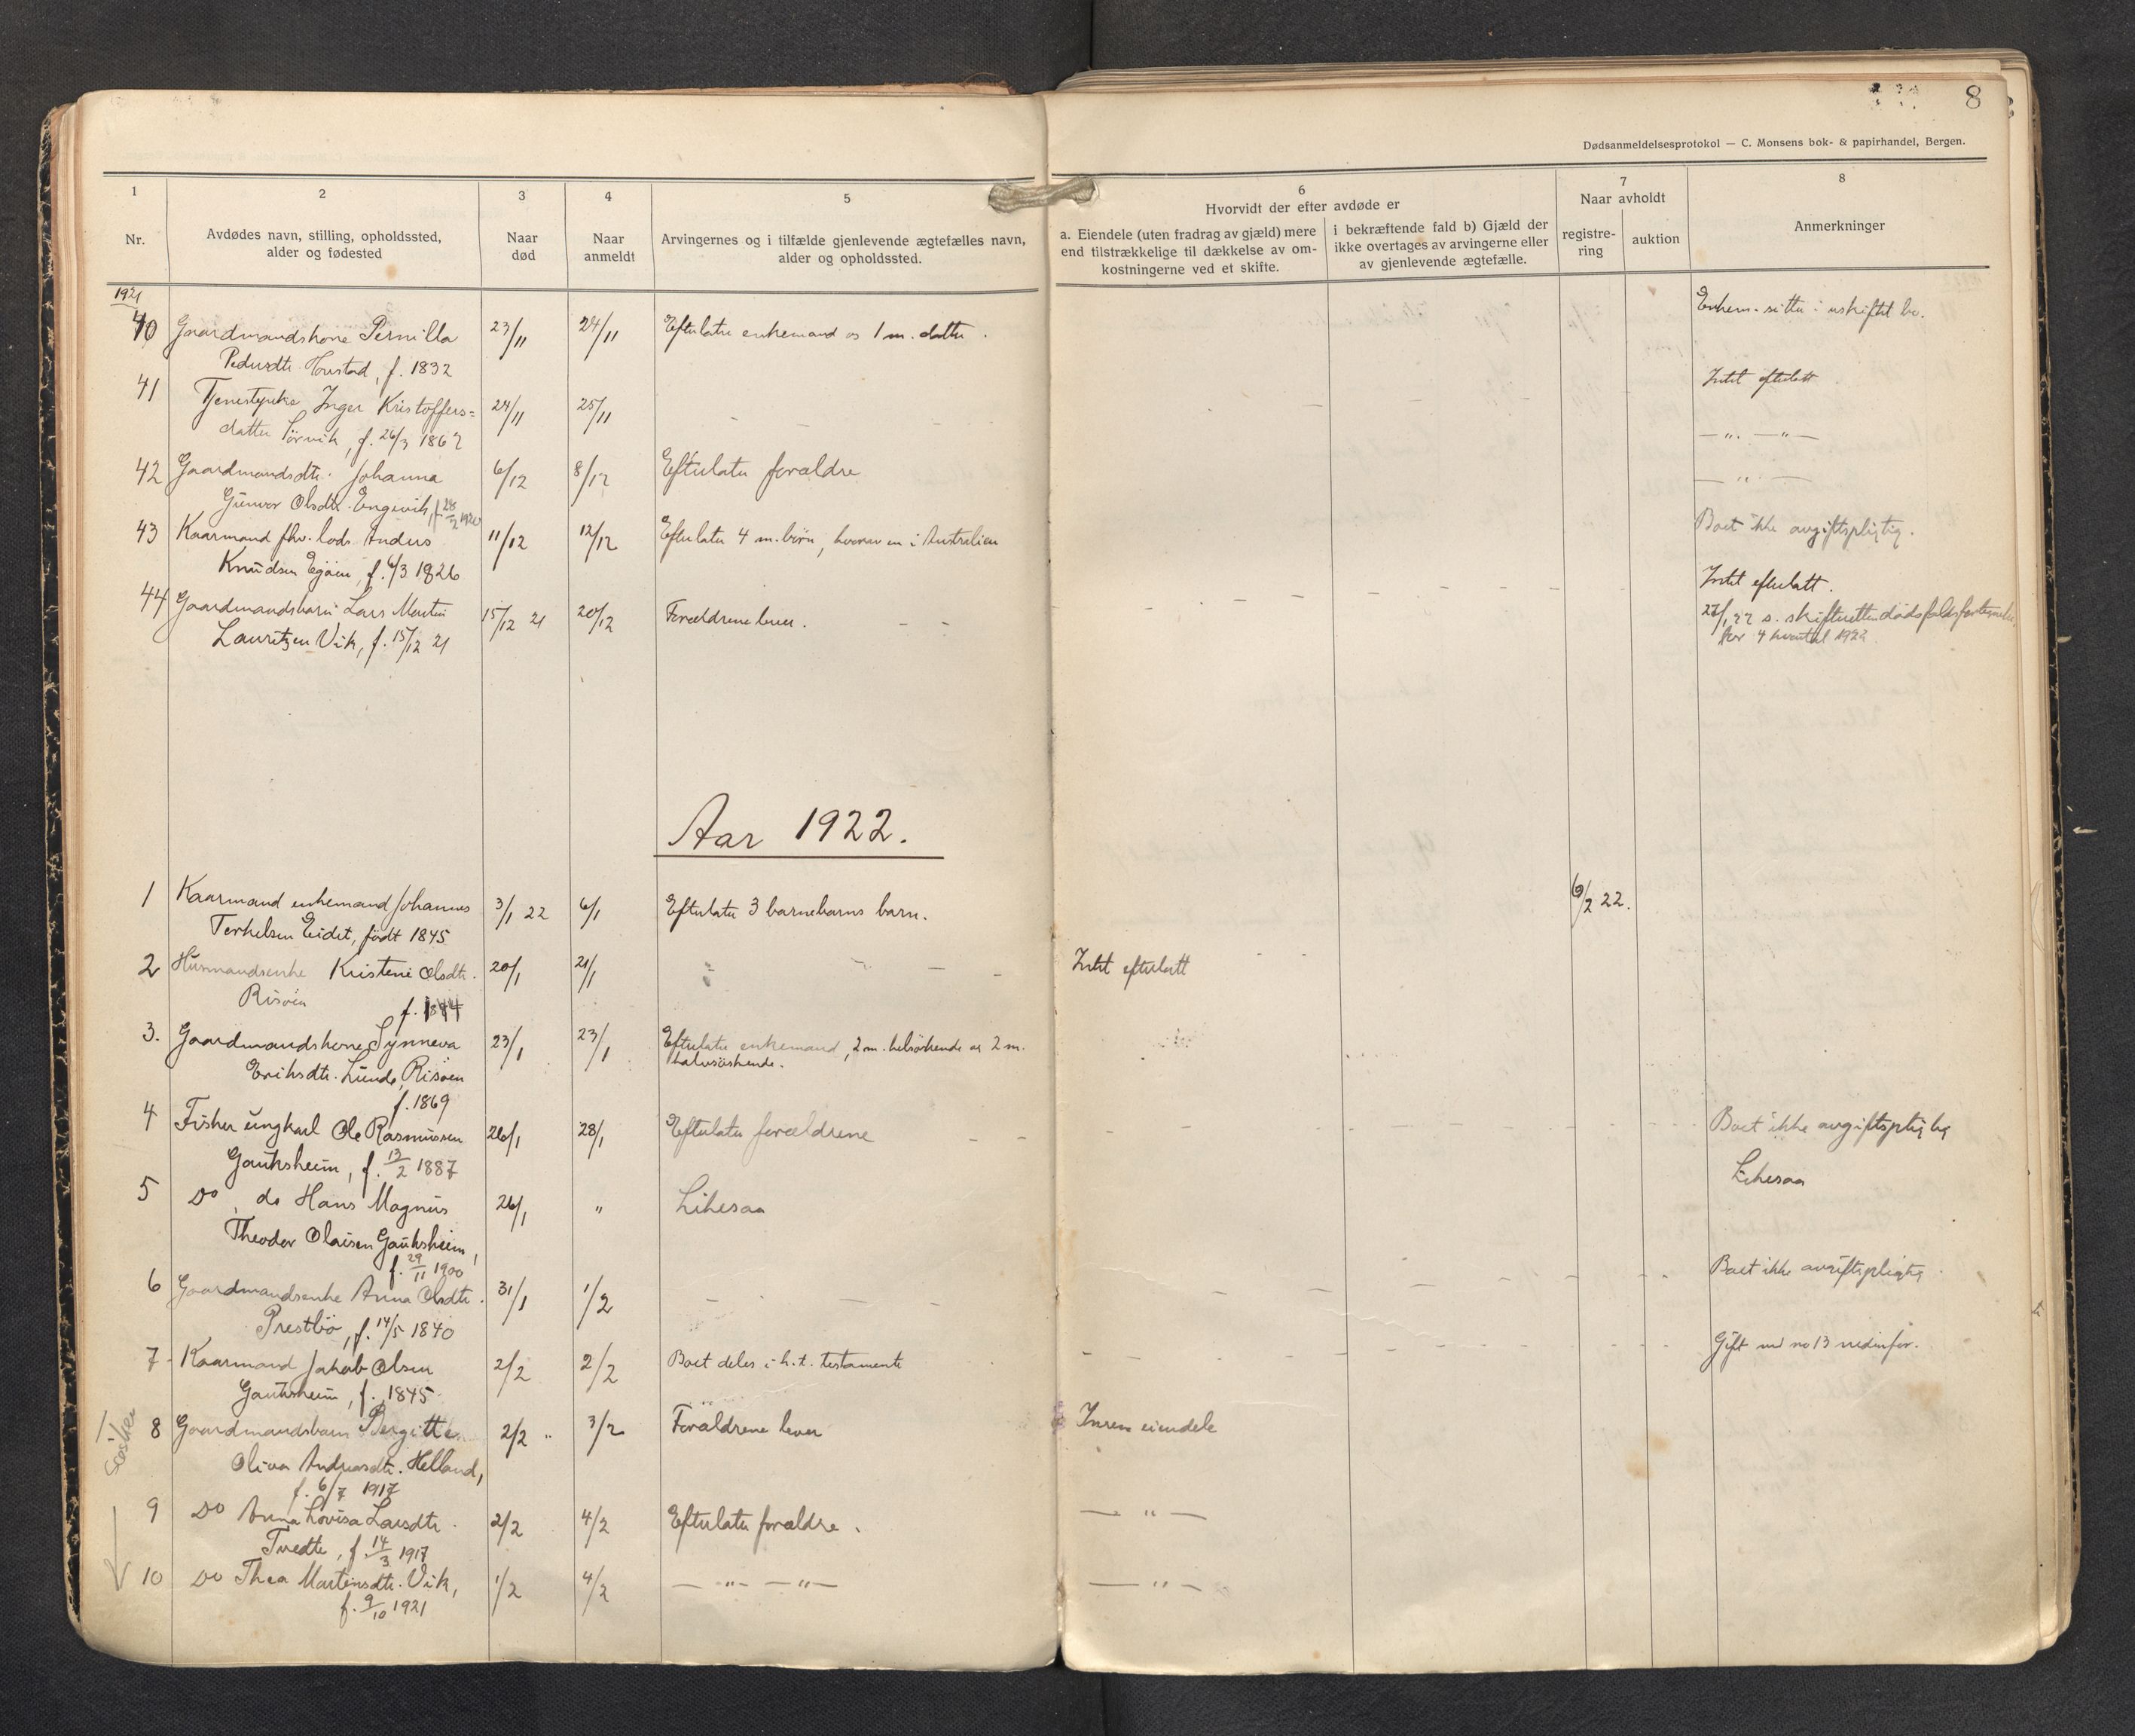 8
Dødsanmeldelsesprotokol — C. Monsens bok- & papirhandel, Bergen.
1 2 3 4 5 6 7 8
Nr.
Avdødes navn, stilling, opholdssted,
alder og fødested
Naar
død
Naar
anmeldt
Arvingernes og i tilfælde gjenlevende ægtefælles navn,
alder og opholdssted.
Hvorvidt der efter avdøde er
a. Eiendele (uten fradrag av gjæld) mere
end tilstrækkelige til dækkelse av om-
kostningerne ved et skifte.
i bekræftende fald b) Gjæld der
ikke overtages av arvingerne eller
av gjenlevende ægtefælle.
Naar avholdt
registre-
ring
auktion
Anmerkninger
1921
40 Gaardmandskone Pernilla 23/11 24/11 Efterlater enkemand og 1 m. datter. Enkem. sitter i uskiftet bo.
Pedersdtr. Houstad, f. 1832
41 Tjenestepike Inger Kristoffers= 24/11 25/11 Intet efterlatt
datter Sörvik, f. 26/3 1862
— " — " —
42 Gaardmandsdtr. Johanna 6/12 8/12 Efterlater forældre — " —
Gunvor Olsdtr. Engevik, f. 28/2 1920
43 Kaarmand fhv. lods Anders 11/12 12/12 Efterlater 4 m. börn, hvorav en i Australien Boet ikke avgiftspligtig.
Knudsen Egöen, f. 6/3 1826
44 Gaardmandsbarn Lars Martin 15/12 21 20/12 Forældrene lever. Intet efterlatt.
Lauritzen Vik, f. 15/12 21
s. skifteretten dödsfaldsfortegnelse
for 4 kvartal 1922
Aar 1922.
1 Kaarmand enkemand Johannes 3/1 22 6/1 Efterlater 3 barnebarns barn. 6/2 22.
Terkelsen Eidet, födt 1845
2 Husmandsenke Kristene Olsdtr. 20/1 21/1 Intet efterlatt
Risöen
f. 1844
3. Gaardmandskone Synneva 23/1 23/1 Efterlater enkemand, 2 m. helsöskende og 2 m.
halvsöskende.
Eriksdtr. Lunde, Risöen
f. 1869
4 Fisker ungkarl Ole Rasmussen 26/1 28/1 Efterlater forældrene Boet ikke avgiftspligtig
Gauksheim, f. 13/2 1887
5 Do, do Hans Magnus 26/1 " Likesaa Likesaa
Theodor Olaisen Gauksheim,
f. 29/11 1900
6 Gaardmandsenke Anna Olsdtr. 31/1 1/2 Boet ikke avgiftspligtig
Prestbö, f. 14/5 1840
7 Kaarmand Jakob Olsen 2/2 2/2 Boet deles i h.t. testamente Gift med no 13 nedenfor.
Gauksheim, f. 1845
8 Gaardmandsbarn Bergitte 2/2 " 3/2 Forældrene lever Ingen eiendele
Oliva Andreasdtr. Helland,
f. 6/7 1917
9 Do Anna Lovisa Larsdtr. 2/2 4/2 Efterlater forældre. — " —
Tvedte, f. 14/3 1917
10 Do Thea Martinsdtr. Vik, 1/2 4/2 — " — " — — " —
f. 9/10 1921